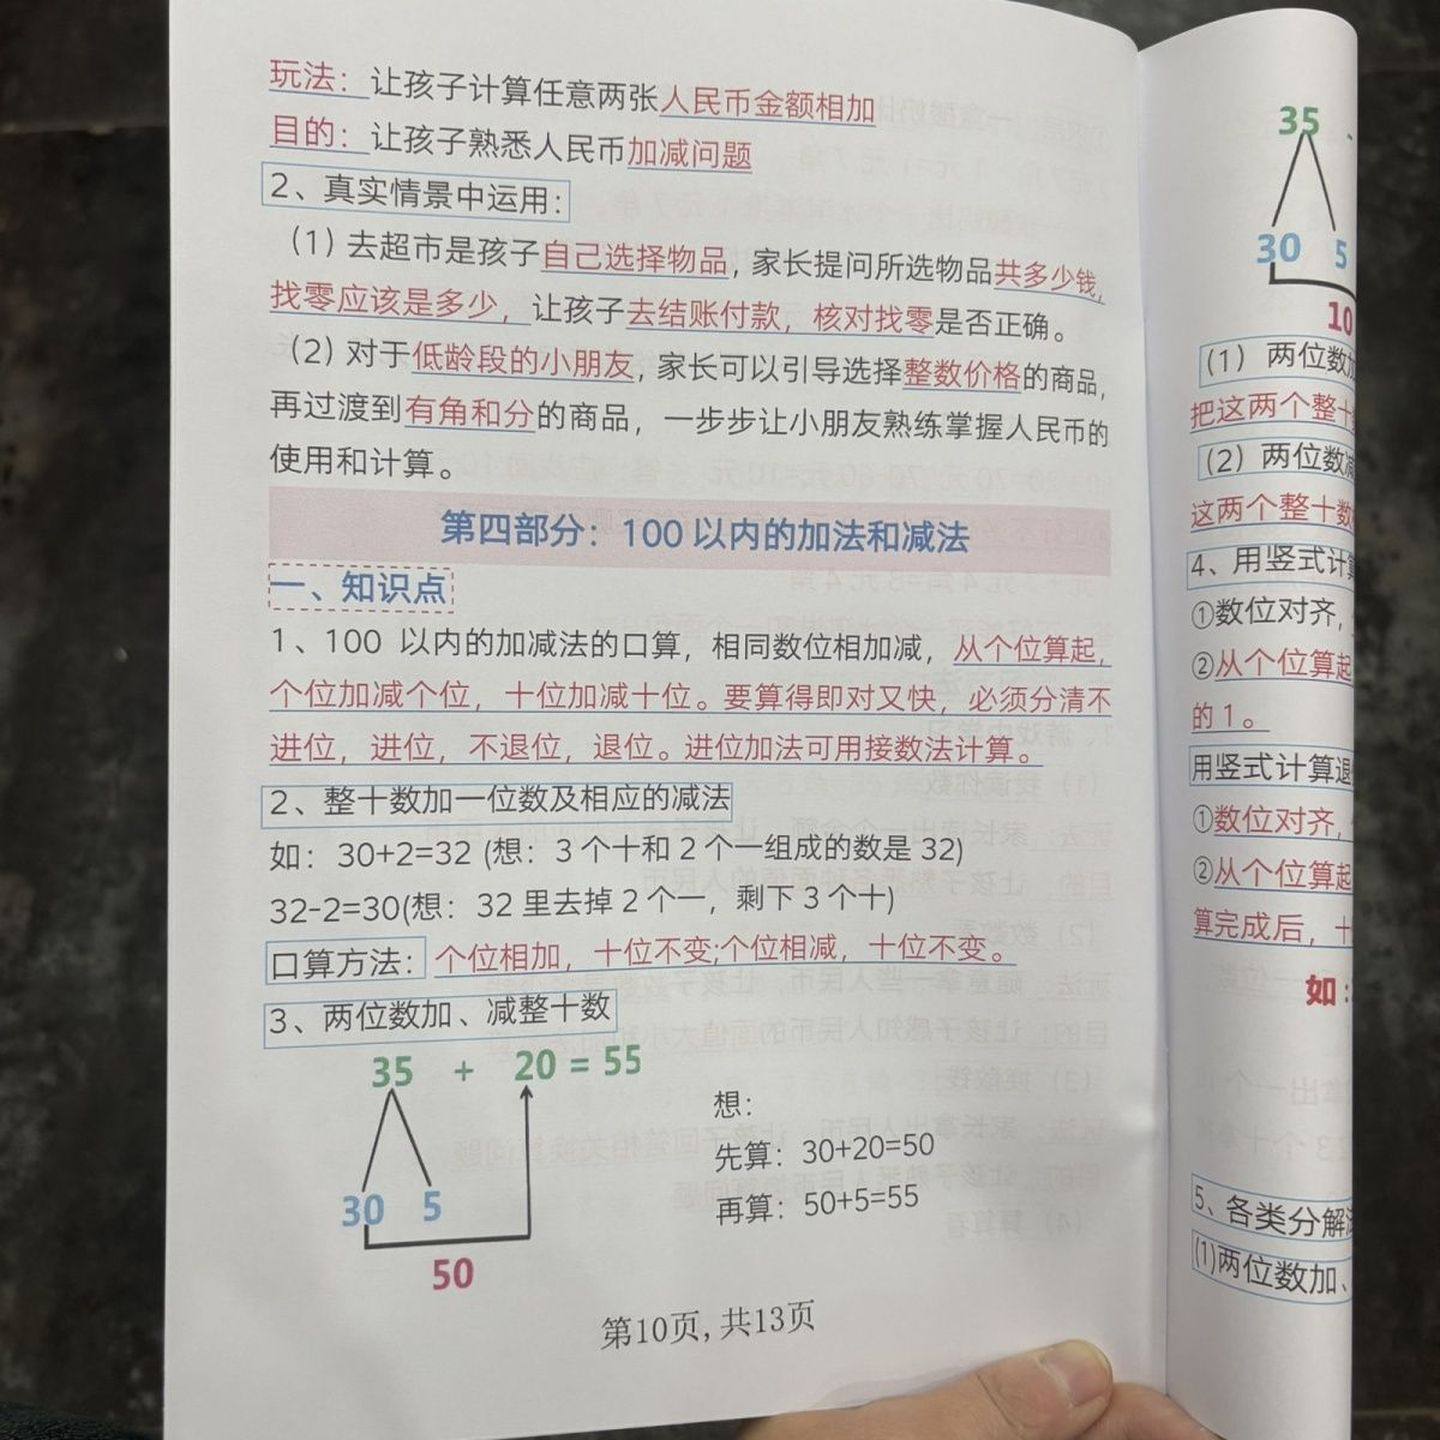 玩法：让孩子计算任意两张人民币金额相加
目的：让孩子熟悉人民币加减问题
2、真实情景中运用：
（1）去超市是孩子自己选择物品，家长提问所选物品共多少钱，
找零应该是多少，让孩子去结账付款，核对找零是否正确。
（2）对于低龄段的小朋友，家长可以引导选择整数价格的商品，
再过渡到有角和分的商品，一步步让小朋友熟练掌握人民币的
使用和计算。
第四部分：100 以内的加法和减法
一、知识点
1、100 以内的加减法的口算，相同数位相加减，从个位算起，
个位加减个位，十位加减十位。要算得即对又快，必须分清不
进位，进位，不退位，退位。进位加法可用接数法计算。
2、整十数加一位数及相应的减法
如：30+2=32 (想：3 个十和 2 个一组成的数是 32)
32-2=30(想：32 里去掉 2 个一，剩下 3 个十)
口算方法：个位相加，十位不变;个位相减，十位不变。
3、两位数加、减整十数
35 + 20 = 55
30 5
50
想：
先算：30+20=50
再算：50+5=55
第10页，共13页
35
30 5
10
（1）两位数加
把这两个整十
（2）两位数减
这两个整十数
4、用竖式计
①数位对齐，
②从个位算起
的 1。
用竖式计算退
①数位对齐，
②从个位算起
算完成后，十
如：
5、各类分解
(1)两位数加、